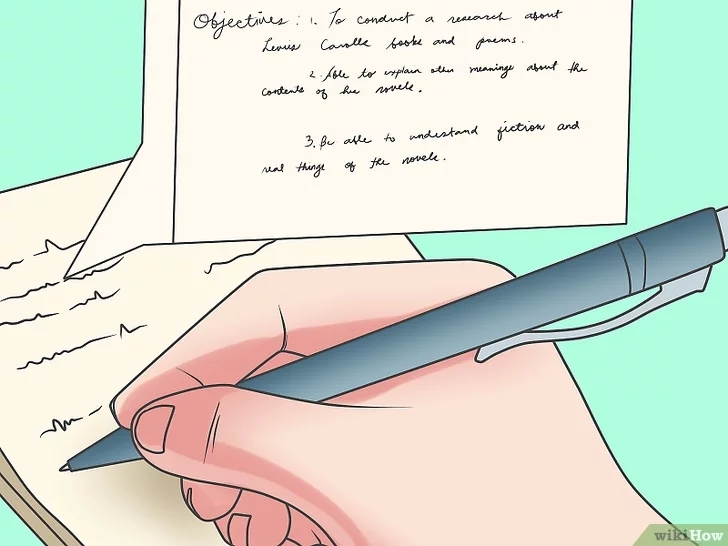 Objectives : 1. To conduct a research about
Lewis Carolls books and poems.
2. Able to explain other meanings about the
contents of his novels.
3. Be able to understand fiction and
real things of the novels.
wikiHow